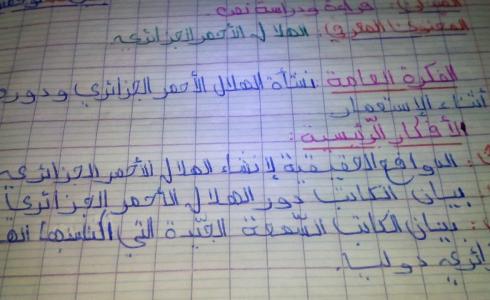 الميدان: قراءة ودراسة نص.
المحتوى المعرفي: الهلال الأحمر الجزائري.
الفكرة العامة: نشأة الهلال الأحمر الجزائري ودوره
أثناء الإستعمار
الأفكار الرئيسية:
الدوافع الحقيقية لإنشاء الهلال الأحمر الجزائري
بيان الكاتب دور الهلال الأحمر الجزائري
بيان الكاتب السمعة الجيّدة التي اكتسبها
دوليا.